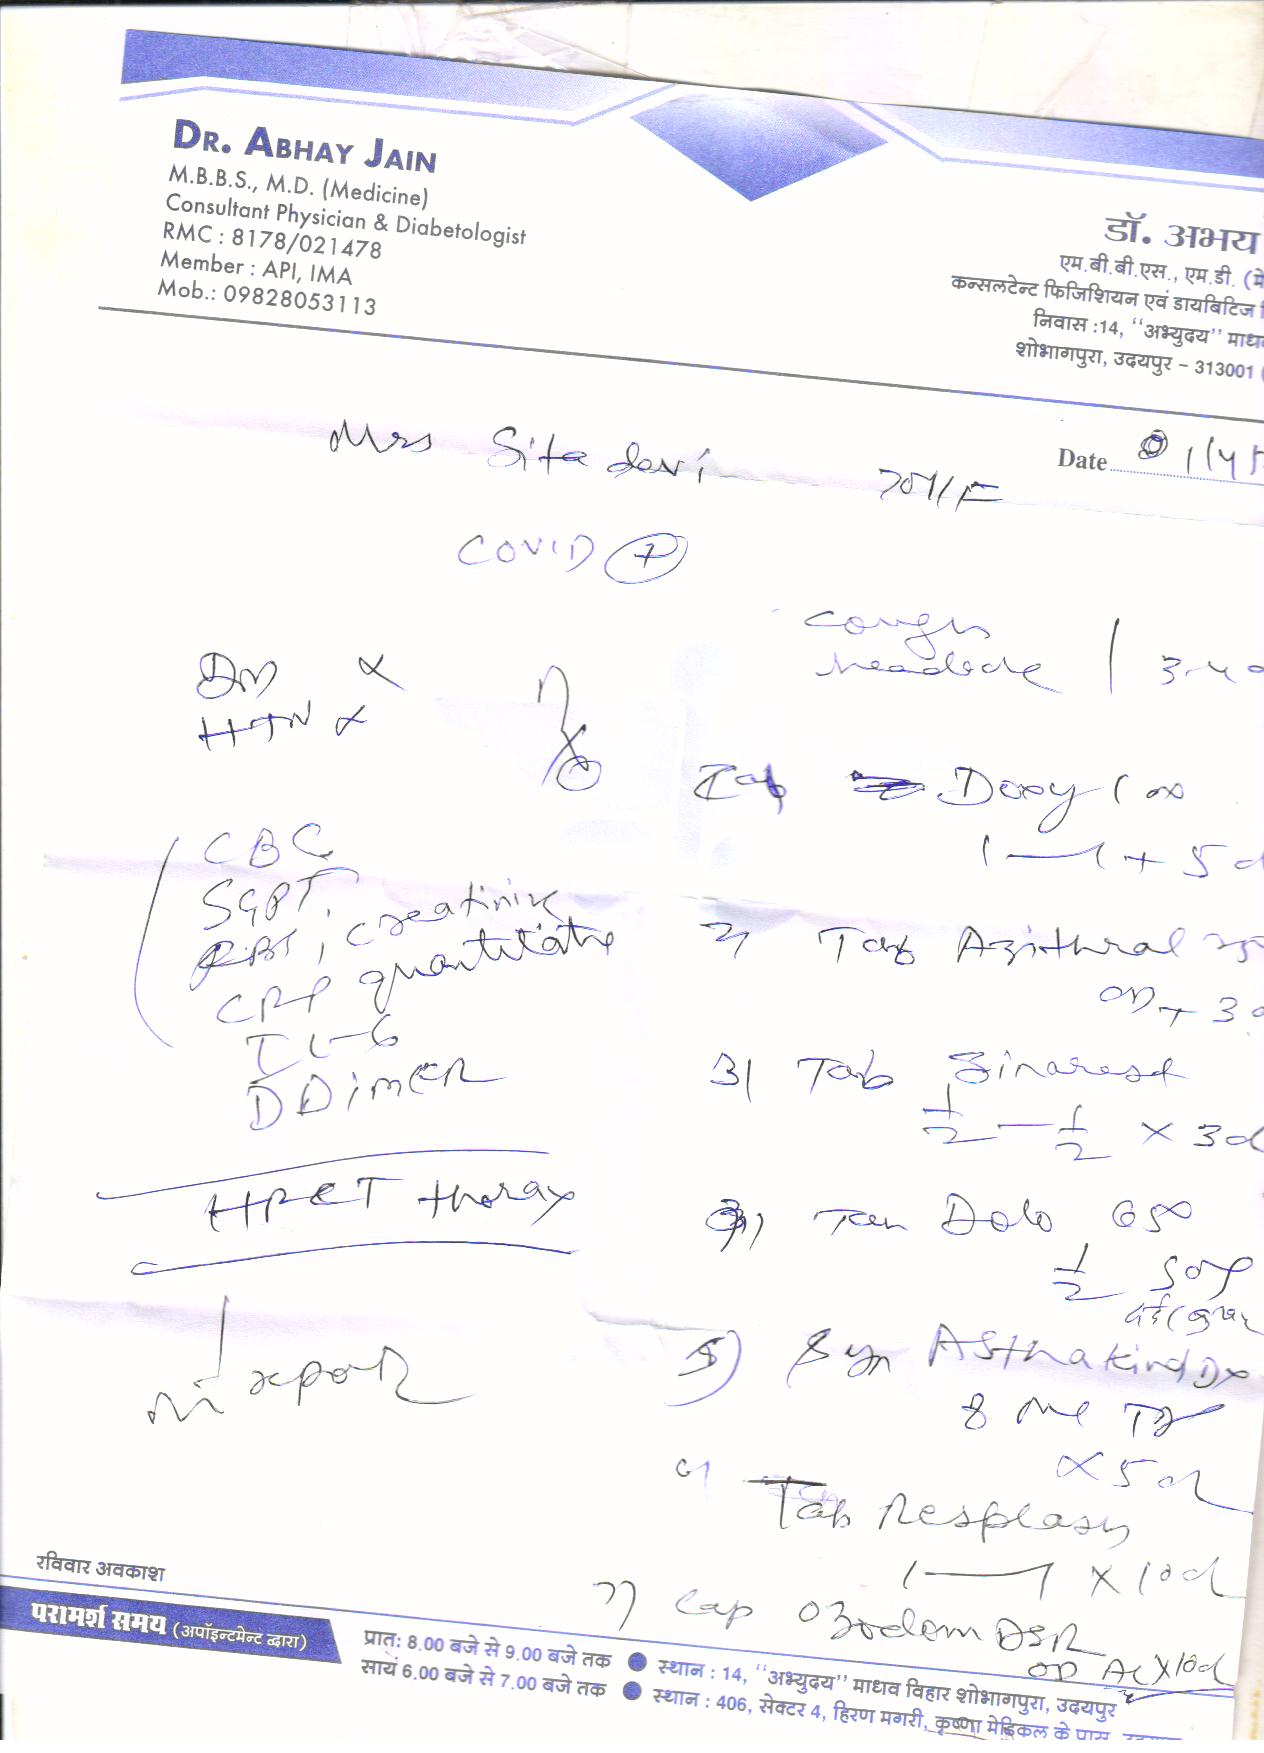 DR. ABHAY JAIN
M.B.B.S., M.D. (Medicine)
Consultant Physician & Diabetologist
RMC : 8178/021478
Member : API, IMA
Mob.: 09828053113
डॉ. अभय
एम.बी.बी.एस., एम.डी. (मे
कन्सलटेन्ट फिजिशियन एवं डायबिटिज
निवास :14, ‘‘अभ्युदय’’ माधव
शोभागपुरा, उदयपुर – 313001 (
Date 01/4/
Mrs Sita devi 70Y/F
COVID +
Cough
headache 3-4
DM ×
HTN ×
CBC
SGPT,
RBS, creatinine
CRP quantitative
IL-6
D Dimer
HRCT thorax
Tab Doxy 100
1—1 + 5d
2) Tab Azithral
OD + 3d
3) Tab Sinarest
1/2 — 1/2 × 3d
Dolo 650
1/2 SOS
5) Syr Asthakind Dx
8 ml
× 5d
Tab
1—1 × 10d
7) Cap DSR
OD AC × 10d
रविवार अवकाश
परामर्श समय (अपॉइन्टमेन्ट द्वारा)
प्रातः 8.00 बजे से 9.00 बजे तक ● स्थान : 14, ‘‘अभ्युदय’’ माधव विहार शोभागपुरा, उदयपुर
सायं 6.00 बजे से 7.00 बजे तक ● स्थान : 406, सेक्टर 4, हिरण मगरी, कृष्णा मेडिकल के पास